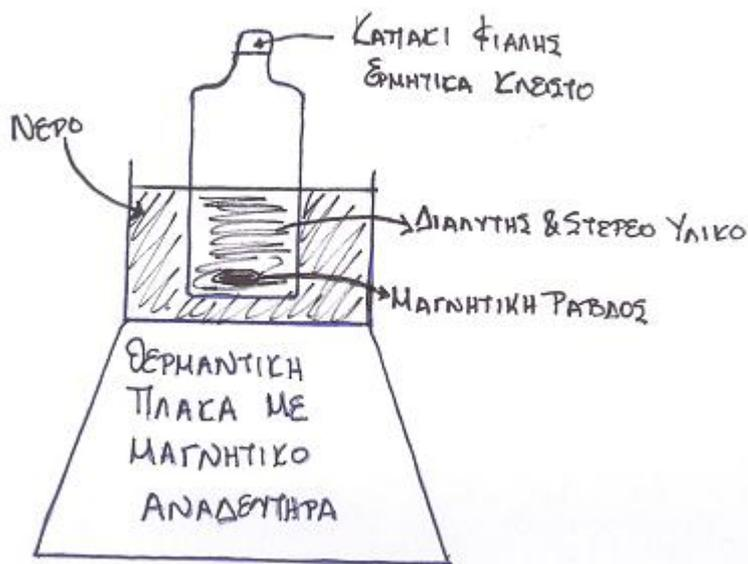 ΚΑΠΑΚΙ ΦΙΑΛΗΣ
ΕΡΜΗΤΙΚΑ ΚΛΕΙΣΤΟ
ΝΕΡΟ
ΔΙΑΛΥΤΗΣ & ΣΤΕΡΕΟ ΥΛΙΚΟ
ΜΑΓΝΗΤΙΚΗ ΡΑΒΔΟΣ
ΘΕΡΜΑΝΤΙΚΗ
ΠΛΑΚΑ ΜΕ
ΜΑΓΝΗΤΙΚΟ
ΑΝΑΔΕΥΤΗΡΑ